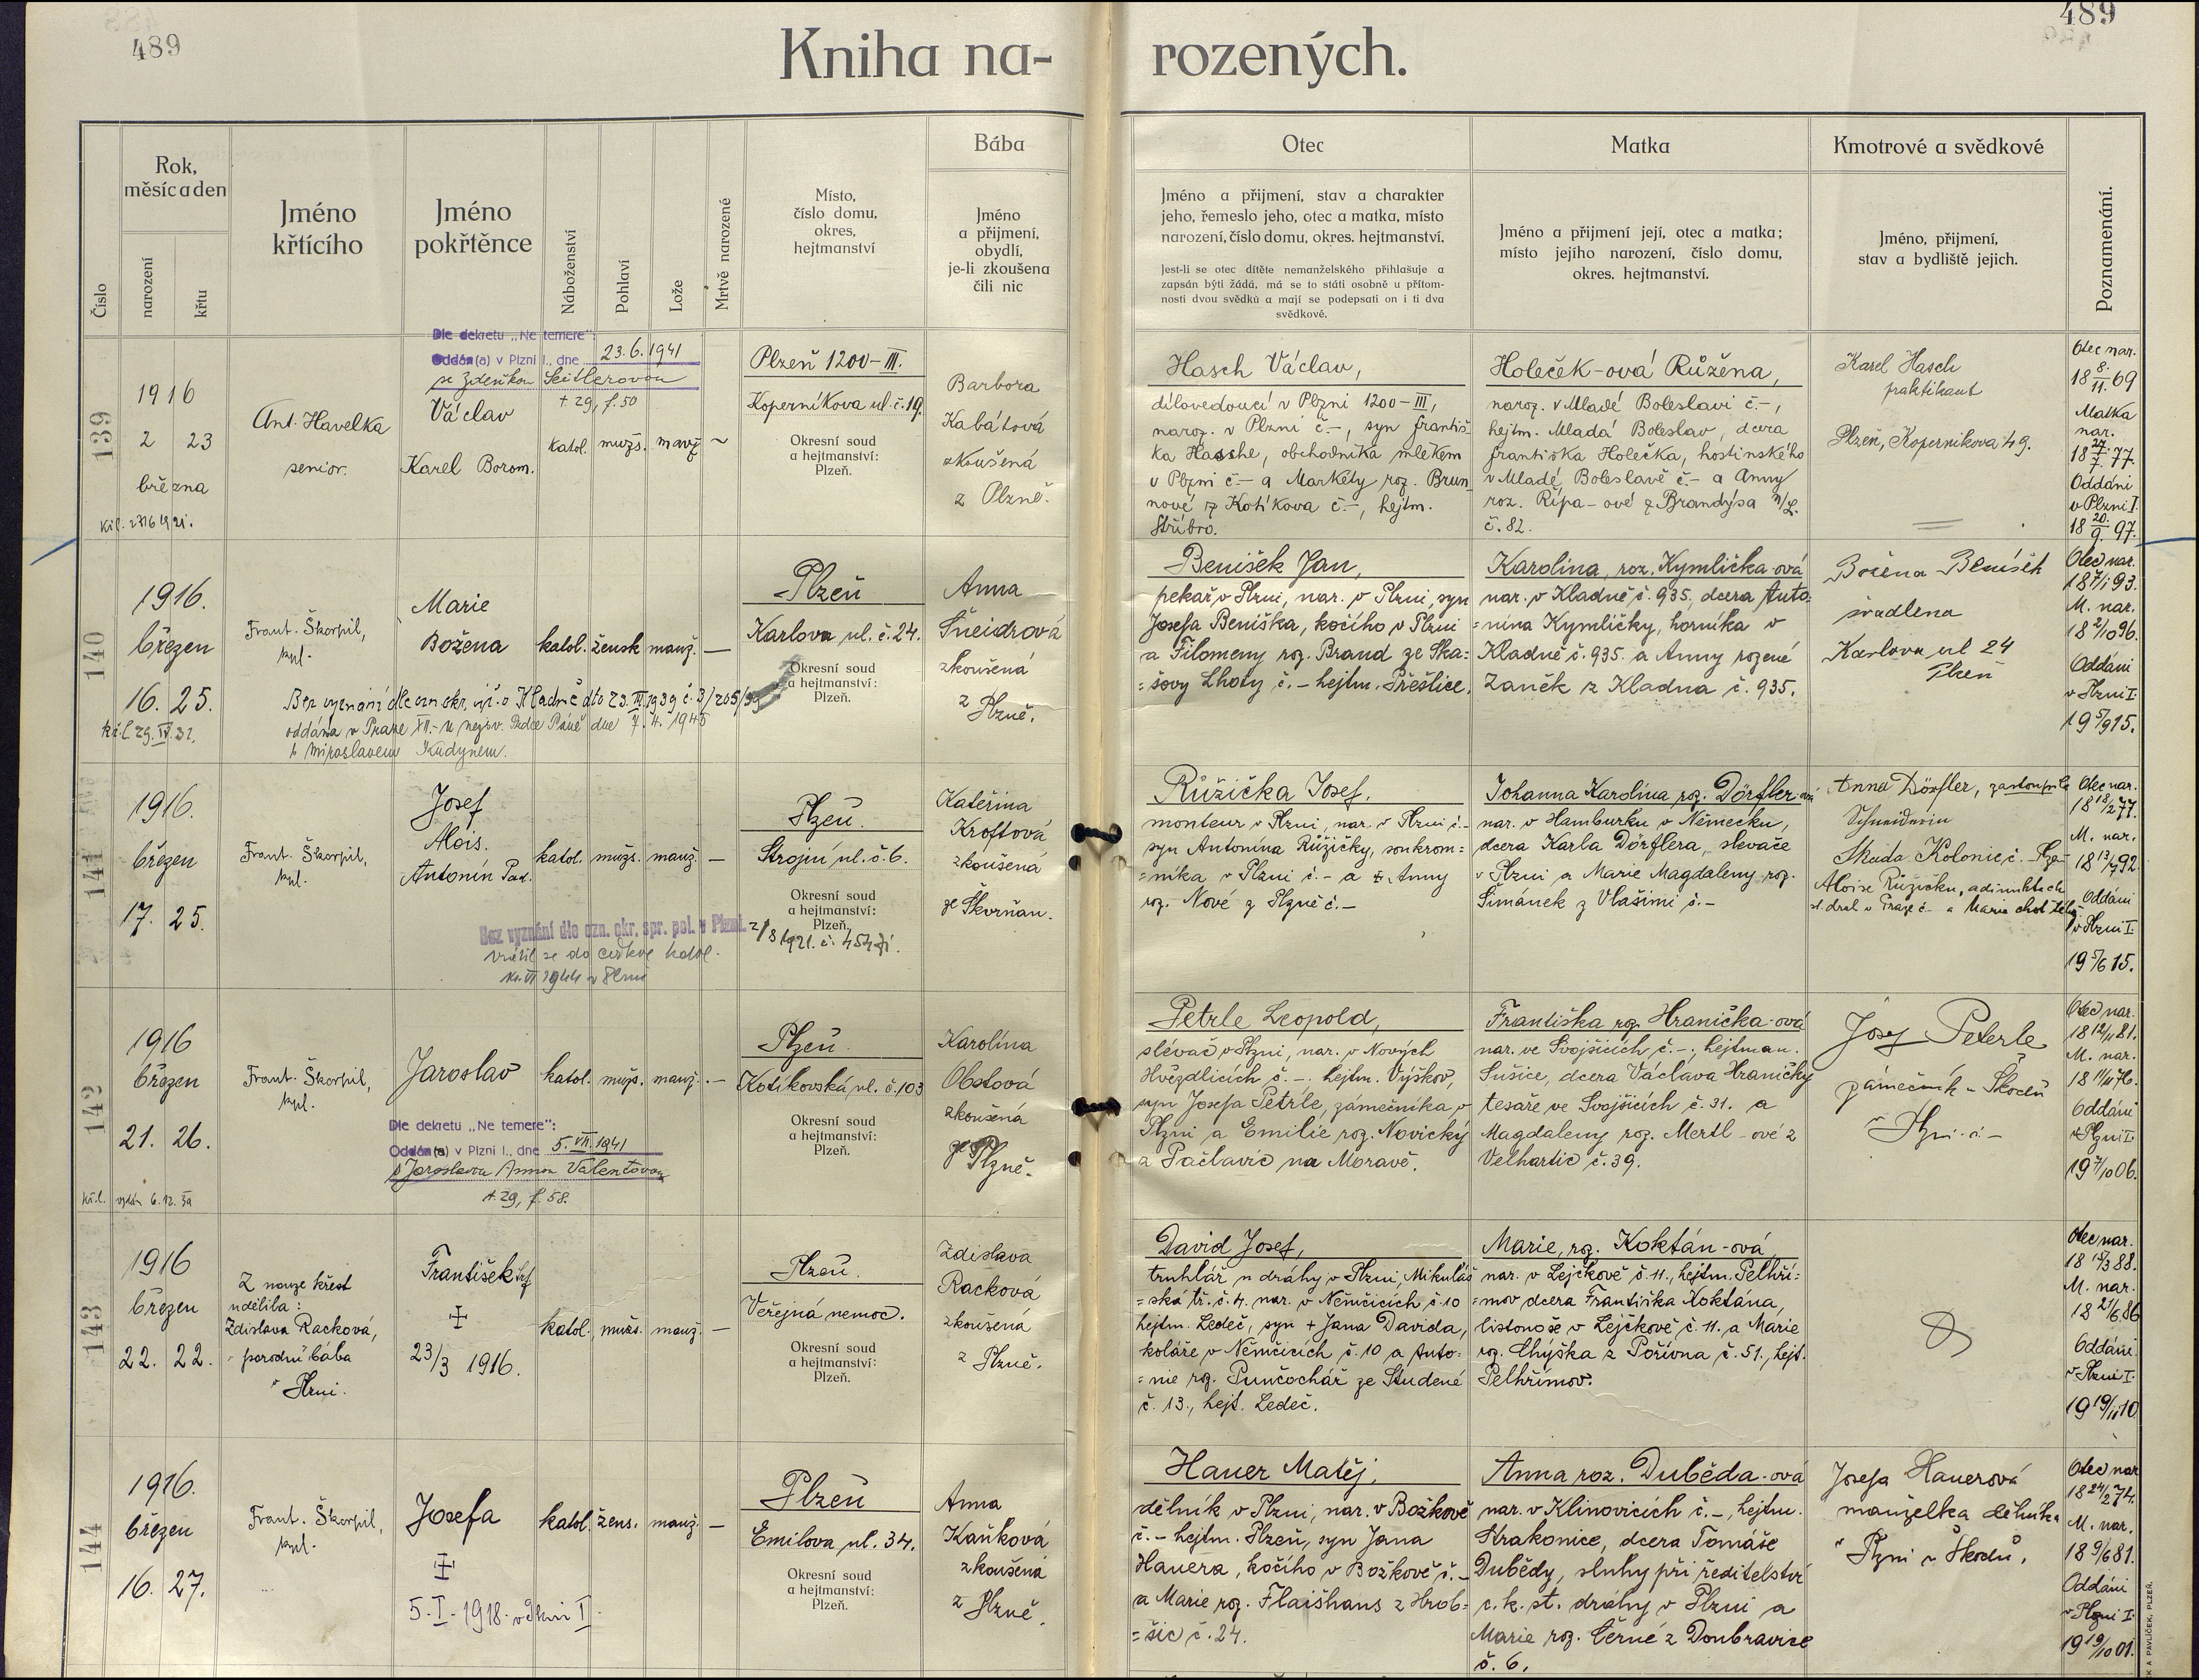 489
489
Kniha na-
rozených.
Číslo
Rok,
měsíc a den
narození
křtu
Jméno
křtícího
Jméno
pokřtěnce
Náboženství
Pohlaví
Lože
Mrtvě narozené
Místo,
číslo domu,
okres,
hejtmanství
Bába
Jméno
a přijmení,
obydlí,
je-li zkoušena
čili nic
Otec
Jméno a přijmení, stav a charakter
jeho, řemeslo jeho, otec a matka, místo
narození, číslo domu, okres. hejtmanství.
Jest-li se otec dítěte nemanželského přihlašuje a
zapsán býti žádá, má se to státi osobně u přítom-
nosti dvou svědků a mají se podepsati on i ti dva
svědkové.
Matka
Jméno a přijmení její, otec a matka;
místo jejího narození, číslo domu,
okres. hejtmanství.
Kmotrové a svědkové
Jméno, přijmení,
stav a bydliště jejich.
Poznamenání.
139
1916
2 23
března
Ant. Havelka
senior.
Dle dekretu „Ne temere":
Oddán(a) v Plzni I., dne 23.6.1941
se Zdeňkou Šeitlerovou
t. 29, f. 50
Václav
Karel Borom.
katol.
mužs.
manž.
Plzeň 1200-III.
Koperníkova ul. č. 19.
Okresní soud
a hejtmanství:
Plzeň.
Barbora
Kabátová
zkoušená
z Plzně.
Hasch Václav,
dílovedoucí v Plzni 1200-III,
naroz. v Plzni č.-, syn Františ-
ka Hasche, obchodníka mlékem
v Plzni č.- a Markéty roz. Brun-
nové z Kotíkova č.-, hejtm.
Stříbro.
Holeček-ová Růžena,
naroz. v Mladé Boleslavi č.-,
hejtm. Mladá Boleslav, dcera
Františka Holečka, hostinského
v Mladé Boleslavě č.- a Anny
roz. Řípa-ové z Brandýsa n/L.
č. 82.
Karel Hasch
praktikant
Plzeň, Kopernikova 49.
Otec nar.
18 8./11. 69
Matka
nar.
18 27./7. 77.
Oddáni
v Plzni I.
18 20./9. 97.
140
1916.
březen
16. 25.
Frant. Škorpil,
kpl.
Marie
Božena
katol.
žensk
manž.
—
Plzeň
Karlova ul. č. 24.
Okresní soud
a hejtmanství:
Plzeň.
Anna
Šneidrová
zkoušená
z Plzně.
Bez vyznání dle ozn. okr. úř. v Kladně dto 23. III. 1939 č. 3/205/39
oddána v Praze XII.-u nejsv. Srdce Páně dne 7. 4. 1945
s Miroslavem Kudynem.
Benišek Jan,
pekař v Plzni, nar. v Plzni, syn
Josefa Beniška, kočího v Plzni
a Filomeny roz. Brand ze Ska=
=šovy Lhoty č.- hejtm. Přeštice.
Karolina, roz. Kymlička-ová
nar. v Kladně č. 935, dcera Anto=
=nína Kymličky, horníka v
Kladně č. 935. a Anny rozené
Zaněk z Kladna č. 935.
Božena Beníšek
švadlena
Karlova ul 24
Plzeň
Otec nar.
18 7/1 93.
M. nar.
18 2/10 96.
Oddáni
v Plzni I.
19 5/9 15.
141
1916.
březen
17. 25.
Frant. Škorpil,
kpl.
Josef
Alois.
Antonín Pad.
katol.
mužs.
manž.
—
Plzeň.
Strojní ul. č. 6.
Okresní soud
a hejtmanství:
Plzeň.
Kateřina
Kroftová
zkoušená
ze Skvrňan.
Bez vyznání dle ozn. okr. spr. pol. v Plzni.
2/8 1921. č. 454
vrátil se do církve katol.
Růžička Josef,
monteur v Plzni, nar. v Plzni č.-
syn Antonína Růžičky, soukrom=
=níka v Plzni č.- a Anny
roz. Nové z Plzně č.-
Johanna Karolina roz. Dörfler-ová
nar. v Hamburku v Německu,
dcera Karla Dörflera, slévače
v Plzni a Marie Magdaleny roz.
Šimánek z Vlašimi č.-
Anna Dörfler,
Schneiderin
Skoda Kolonie č.-
Otec nar.
18 18/2 77.
M. nar.
18 13/7 92.
Oddáni
v Plzni I.
19 5/6 15.
142
1916
březen
21. 26.
Frant. Škorpil,
kpl.
Jaroslav
katol.
mužs.
manž.
—
Plzeň.
Kotíkovská ul. č. 103
Okresní soud
a hejtmanství:
Plzeň.
Karolína
Obstová
zkoušená
ze Plzně.
Dle dekretu „Ne temere":
Oddán(a) v Plzni I., dne 5. VII. 1941
s Jaroslavou Annou Valentovou
t. 29, f. 58.
Petrle Leopold,
slévač v Plzni, nar. v Nových
Hvězdlicích č.-. hejtm. Výškov,
syn Josefa Petrle, zámečníka v
Plzni a Emilie roz. Novický
z Pačlavic na Moravě.
Františka roz. Hranička-ová
nar. ve Svojšicích č.-, hejtman.
Sušice, dcera Václava Hraničky
tesaře ve Svojšicích č. 31. a
Magdaleny roz. Mertl-ové z
Velhartic č. 39.
Josef Peterle
zámečník u Škodů
v Plzni č.-
Otec nar.
18 12/11 81.
M. nar.
18 11/11 76.
Oddáni
v Plzni I.
19 7/10 06.
143
1916
březen
22. 22.
Z nouze křest
udělila:
Zdislava Racková,
porodní bába
v Plzni.
František
+
23/3 1916.
katol.
mužs.
manž.
—
Plzeň.
Veřejná nemoc.
Okresní soud
a hejtmanství:
Plzeň.
Zdislava
Racková
zkoušená
z Plzně.
David Josef,
truhlář u dráhy v Plzni, Mikuláš
=ská tř. č. 4. nar. v Němčicích č. 10
hejtm. Ledeč, syn + Jana Davida,
koláře v Němčicích č. 10 a Anto=
=nie roz. Punčochář ze Studené
č. 13., hejt. Ledeč.
Marie, roz. Koktán-ová,
nar. v Lejčkově č. 11., hejtm. Pelhři=
=mov dcera Františka Koktána,
listonoše v Lejčkově č. 11. a Marie
roz. Chýška z Pořívna č. 51., hejt.
Pelhřimov.
Otec nar.
18 15/3 88.
M. nar.
18 21/6 86
Oddáni
v Plzni I.
19 19/11 10
144
1916.
březen
16. 27.
Frant. Škorpil,
kpl.
Josefa
5. I. 1918. v Plzni I.
katol.
žens.
manž.
—
Plzeň
Emilova ul. 34.
Okresní soud
a hejtmanství:
Plzeň.
Anna
Kaňková
zkoušená
z Plzně.
Hauer Matěj,
dělník v Plzni, nar. v Božkově
č.- hejtm. Plzeň, syn Jana
Hauera, kočího v Božkově č.-
a Marie roz. Flaišhans z Hrob=
=šic č. 24.
Anna roz. Duběda-ová
nar. v Klinovicích č.-, hejtm.
Strakonice, dcera Tomáše
Dubědy, sluhy při ředitelství
c. k. st. dráhy v Plzni a
Marie roz. Černé z Doubravice
č. 6.
Josefa Hauerová
manželka dělníka
v Plzni u Škodů.
Otec nar
18 24/2 74.
M. nar.
18 9/6 81.
Oddáni
v Plzni I.
19 19/10 01.